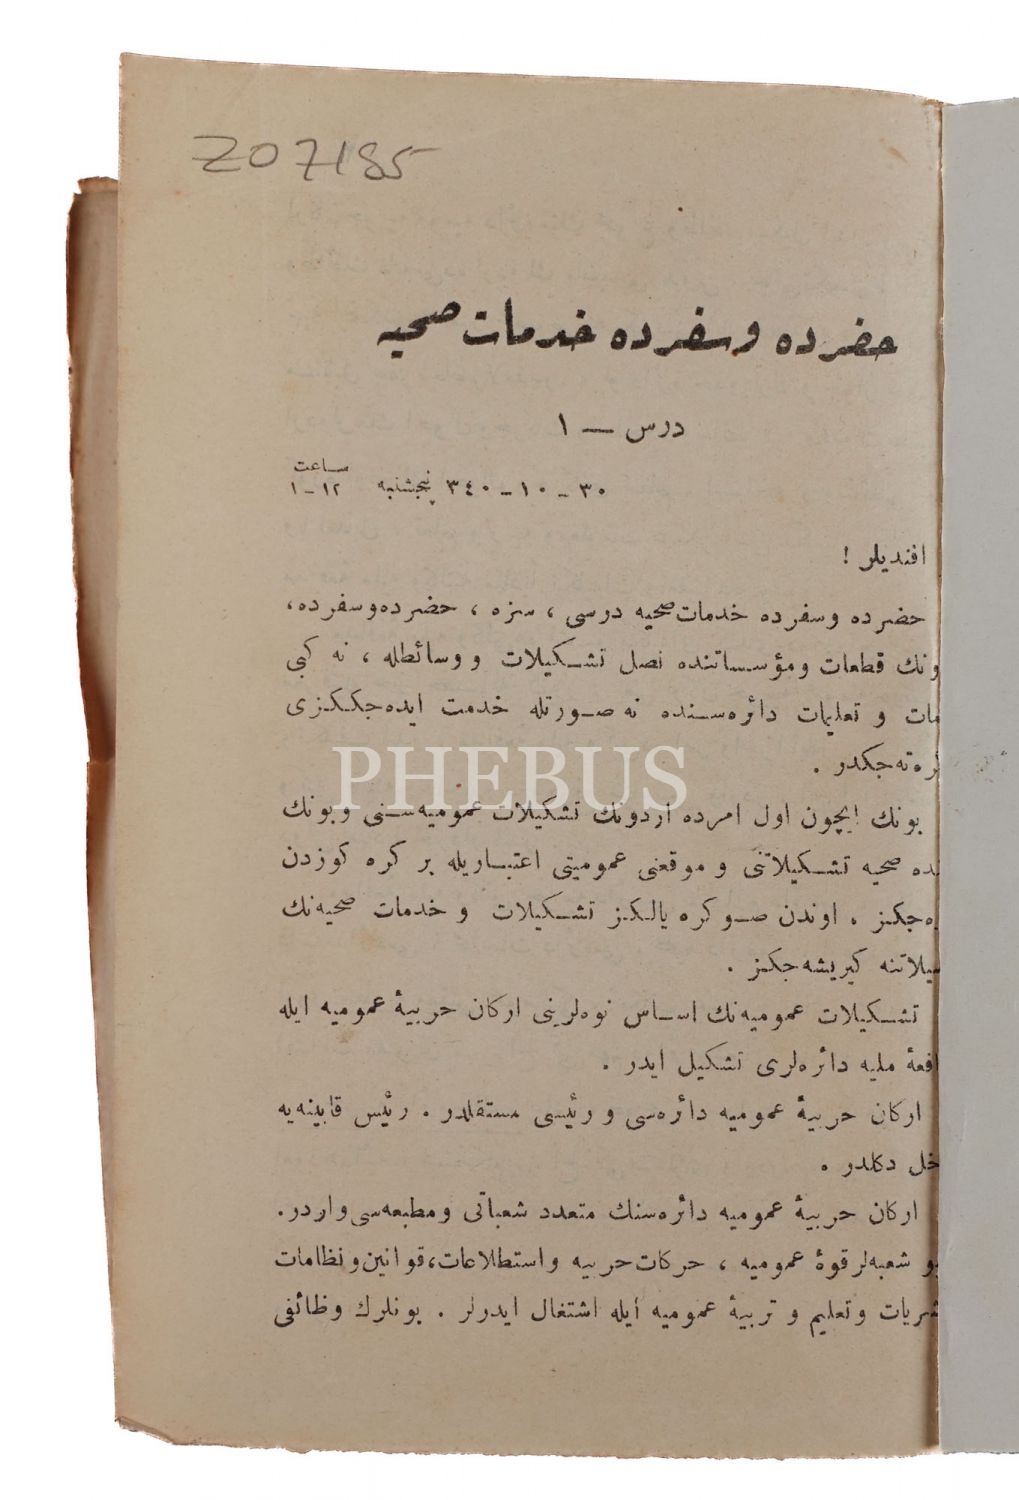 Z07185
حضرده و سفرده خدمات صحیه
درس — ۱
۳۰ - ۱۰ - ۳٤۰ پنجشنبه ساعت ۱۲ - ۱
افندیلر !
حضرده و سفرده خدمات صحیه درسی ، سزه ، حضرده و سفرده ،
ونك قطعات و مؤسساتنده نصل تشکیلات و وسائطله ، نه کبی
مات و تعلیمات دائره‌سنده نه صورتله خدمت ایده‌جککزی
ره‌ته‌جکدر .
PHEBUS
بونك ایچون اول امرده اردونك تشکیلات عمومیه‌سنی و بونك
نده صحیه تشکیلاتنی و موقعنی عمومیتی اعتباریله بر کره کوزدن
ه‌جکز . اوندن صوکره یالکز تشکیلات و خدمات صحیه‌نك
یلاتنه کیریشه‌جکز .
تشکیلات عمومیه‌نك اساس نوه‌لرینی ارکان حربیهٔ عمومیه ایله
افعهٔ ملیه دائره‌لری تشکیل ایدر .
ارکان حربیهٔ عمومیه دائره‌سی و رئیسی مستقلدر . رئیس قابینه‌یه
خل دکلدر .
ارکان حربیهٔ عمومیه دائره‌سنك متعدد شعباتی و مطبعه‌سی واردر.
بو شعبه‌لر قوهٔ عمومیه ، حرکات حربیه و استطلاعات، قوانین و نظامات
شریات و تعلیم و تربیهٔ عمومیه ایله اشتغال ایدرلر . بونلرك وظائفی